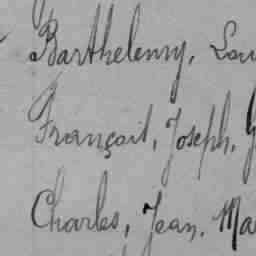 Barthelemy, Lou
François, Joseph, G
Charles, Jean, Ma